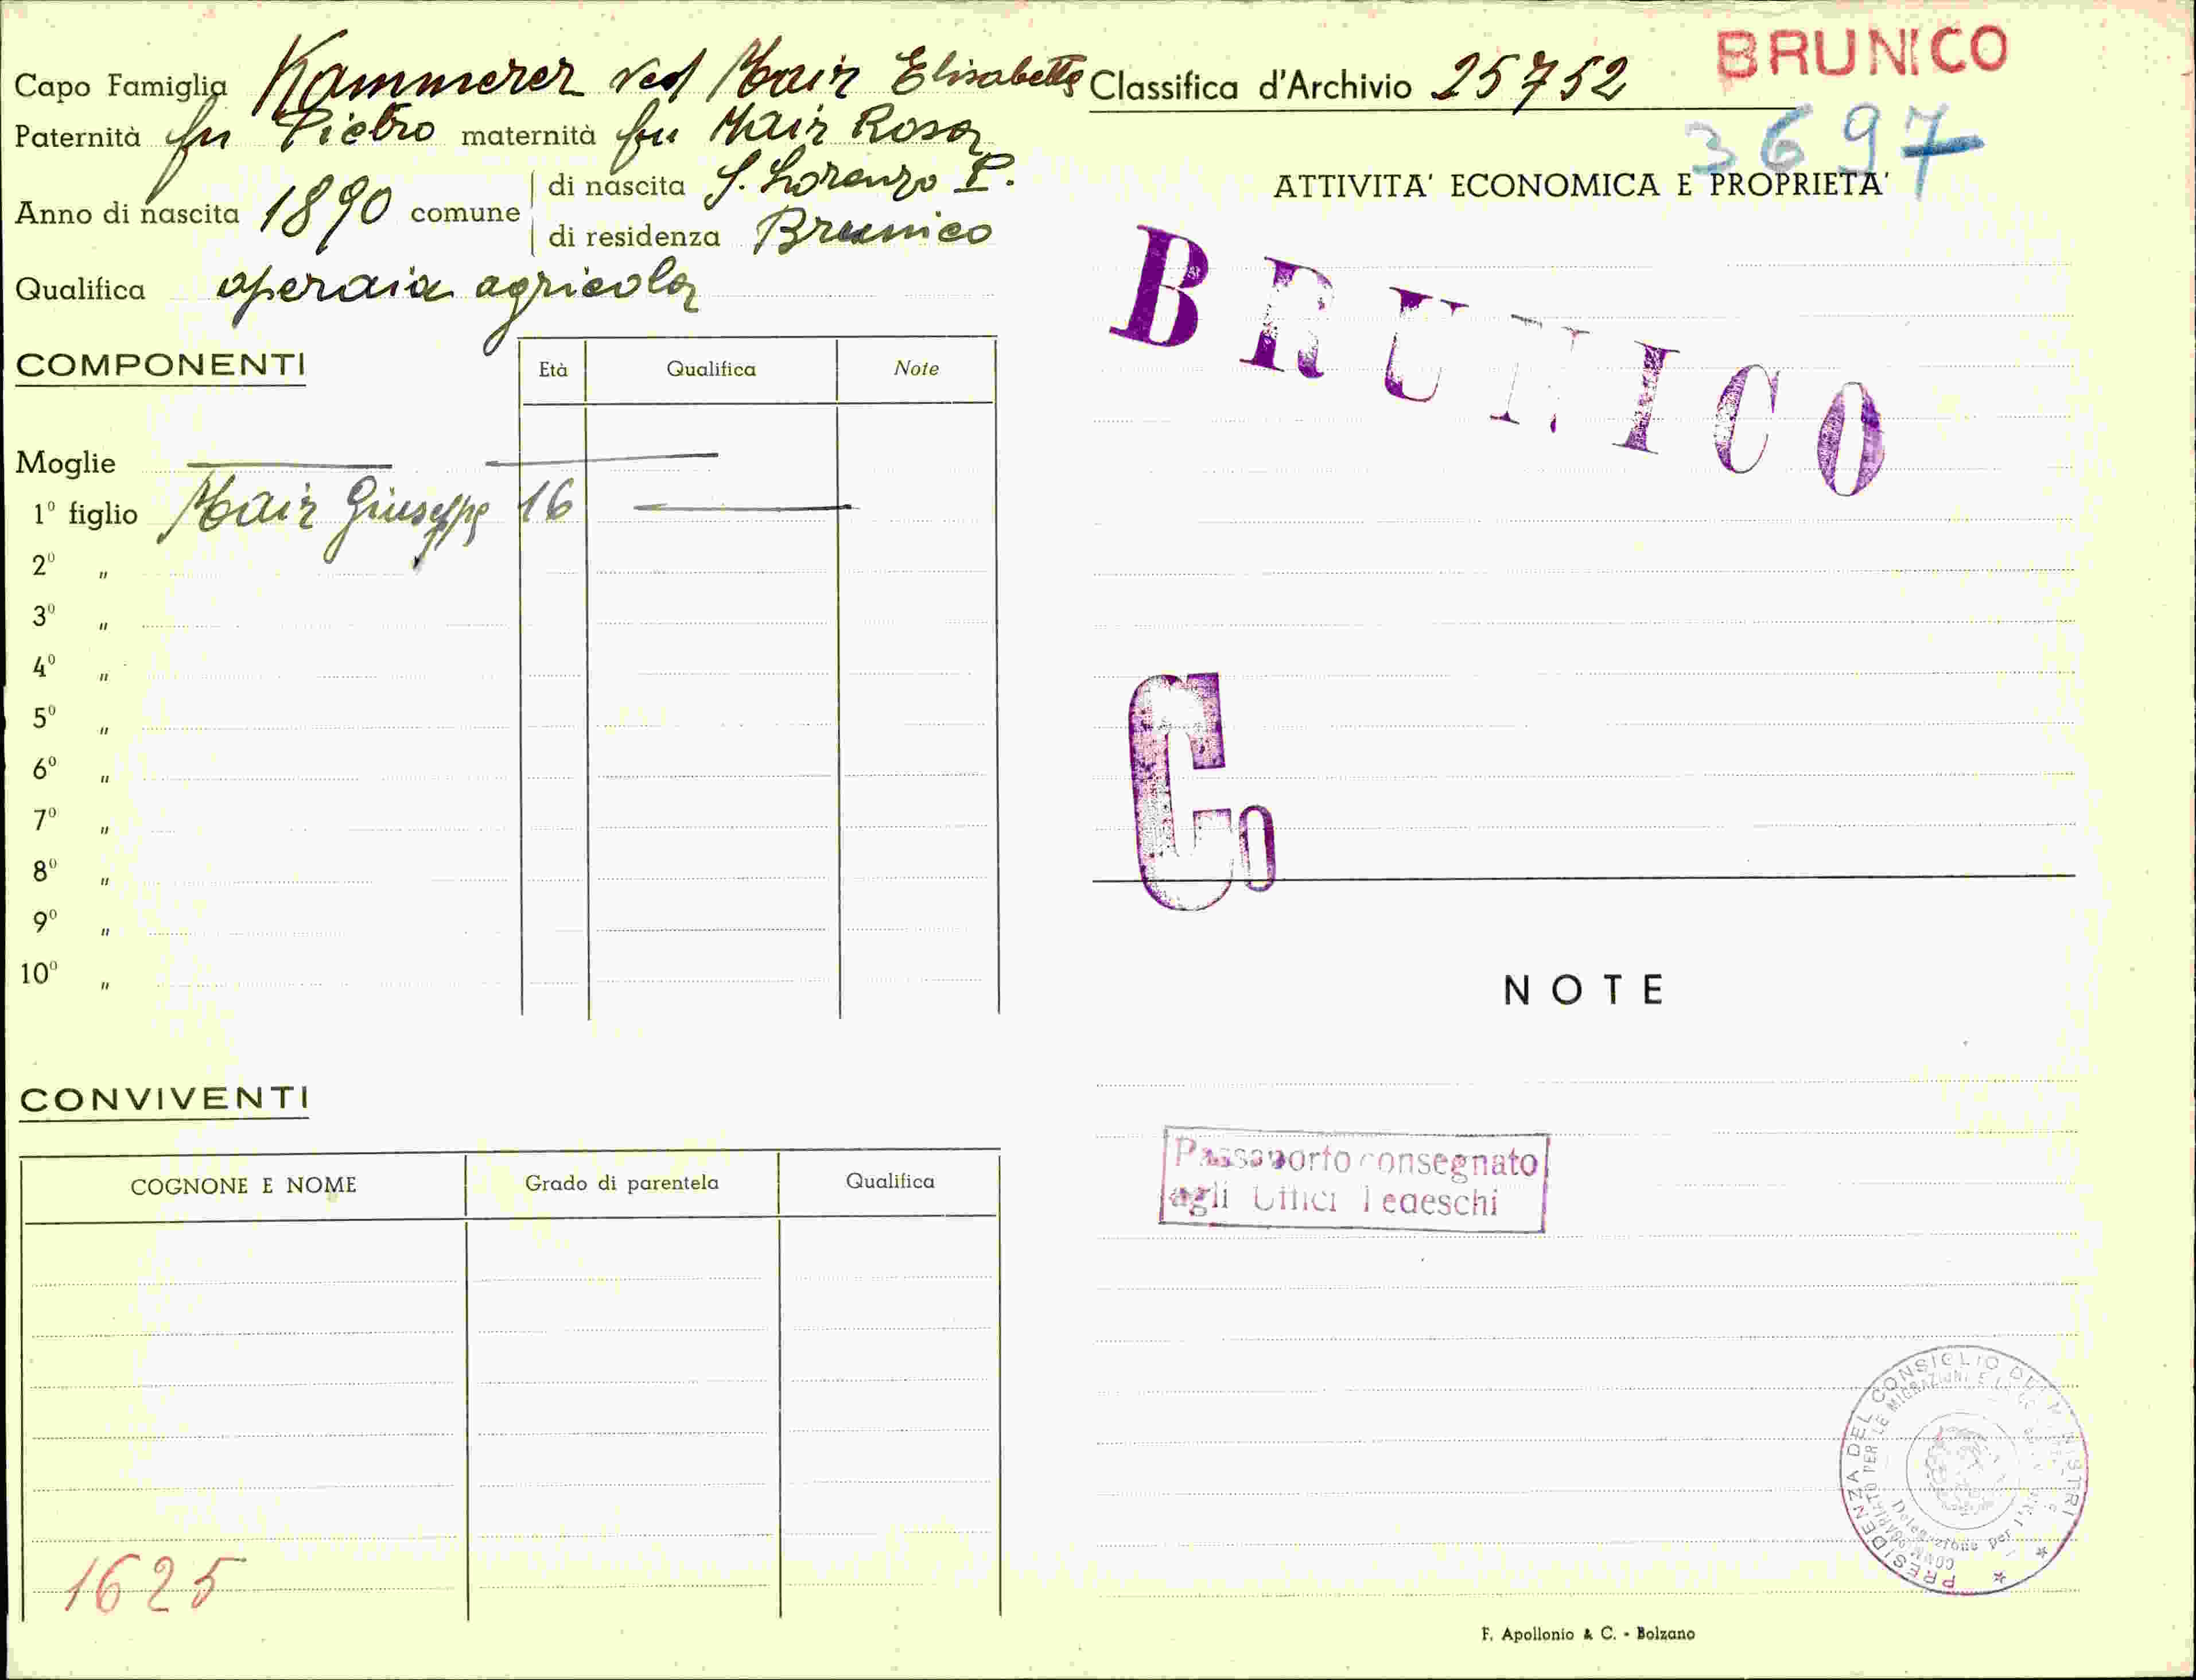 Capo Famiglia Kammerer ved Mair Elisabetta
Paternità fu Pietro maternità fu Mair Rosa
Anno di nascita 1890 comune di nascita S. Lorenzo P.
di residenza Brunico
Qualifica operaia agricola
COMPONENTI Età Qualifica Note
Moglie
1º figlio Mair Giuseppe 16
2º "
3º "
4º "
5º "
6º "
7º "
8º "
9º "
10º "
CONVIVENTI
COGNONE E NOME Grado di parentela Qualifica
1625
Classifica d'Archivio 25752 BRUNICO
3697
ATTIVITA' ECONOMICA E PROPRIETA'
BRUNICO
Co
NOTE
Passaporto consegnato
agli Uffici Tedeschi
PRESIDENZA DEL CONSIGLIO DEI MINISTRI
COMMISSARIATO PER LE MIGRAZIONI E LA
Delegazione per
F. Apollonio & C. - Bolzano